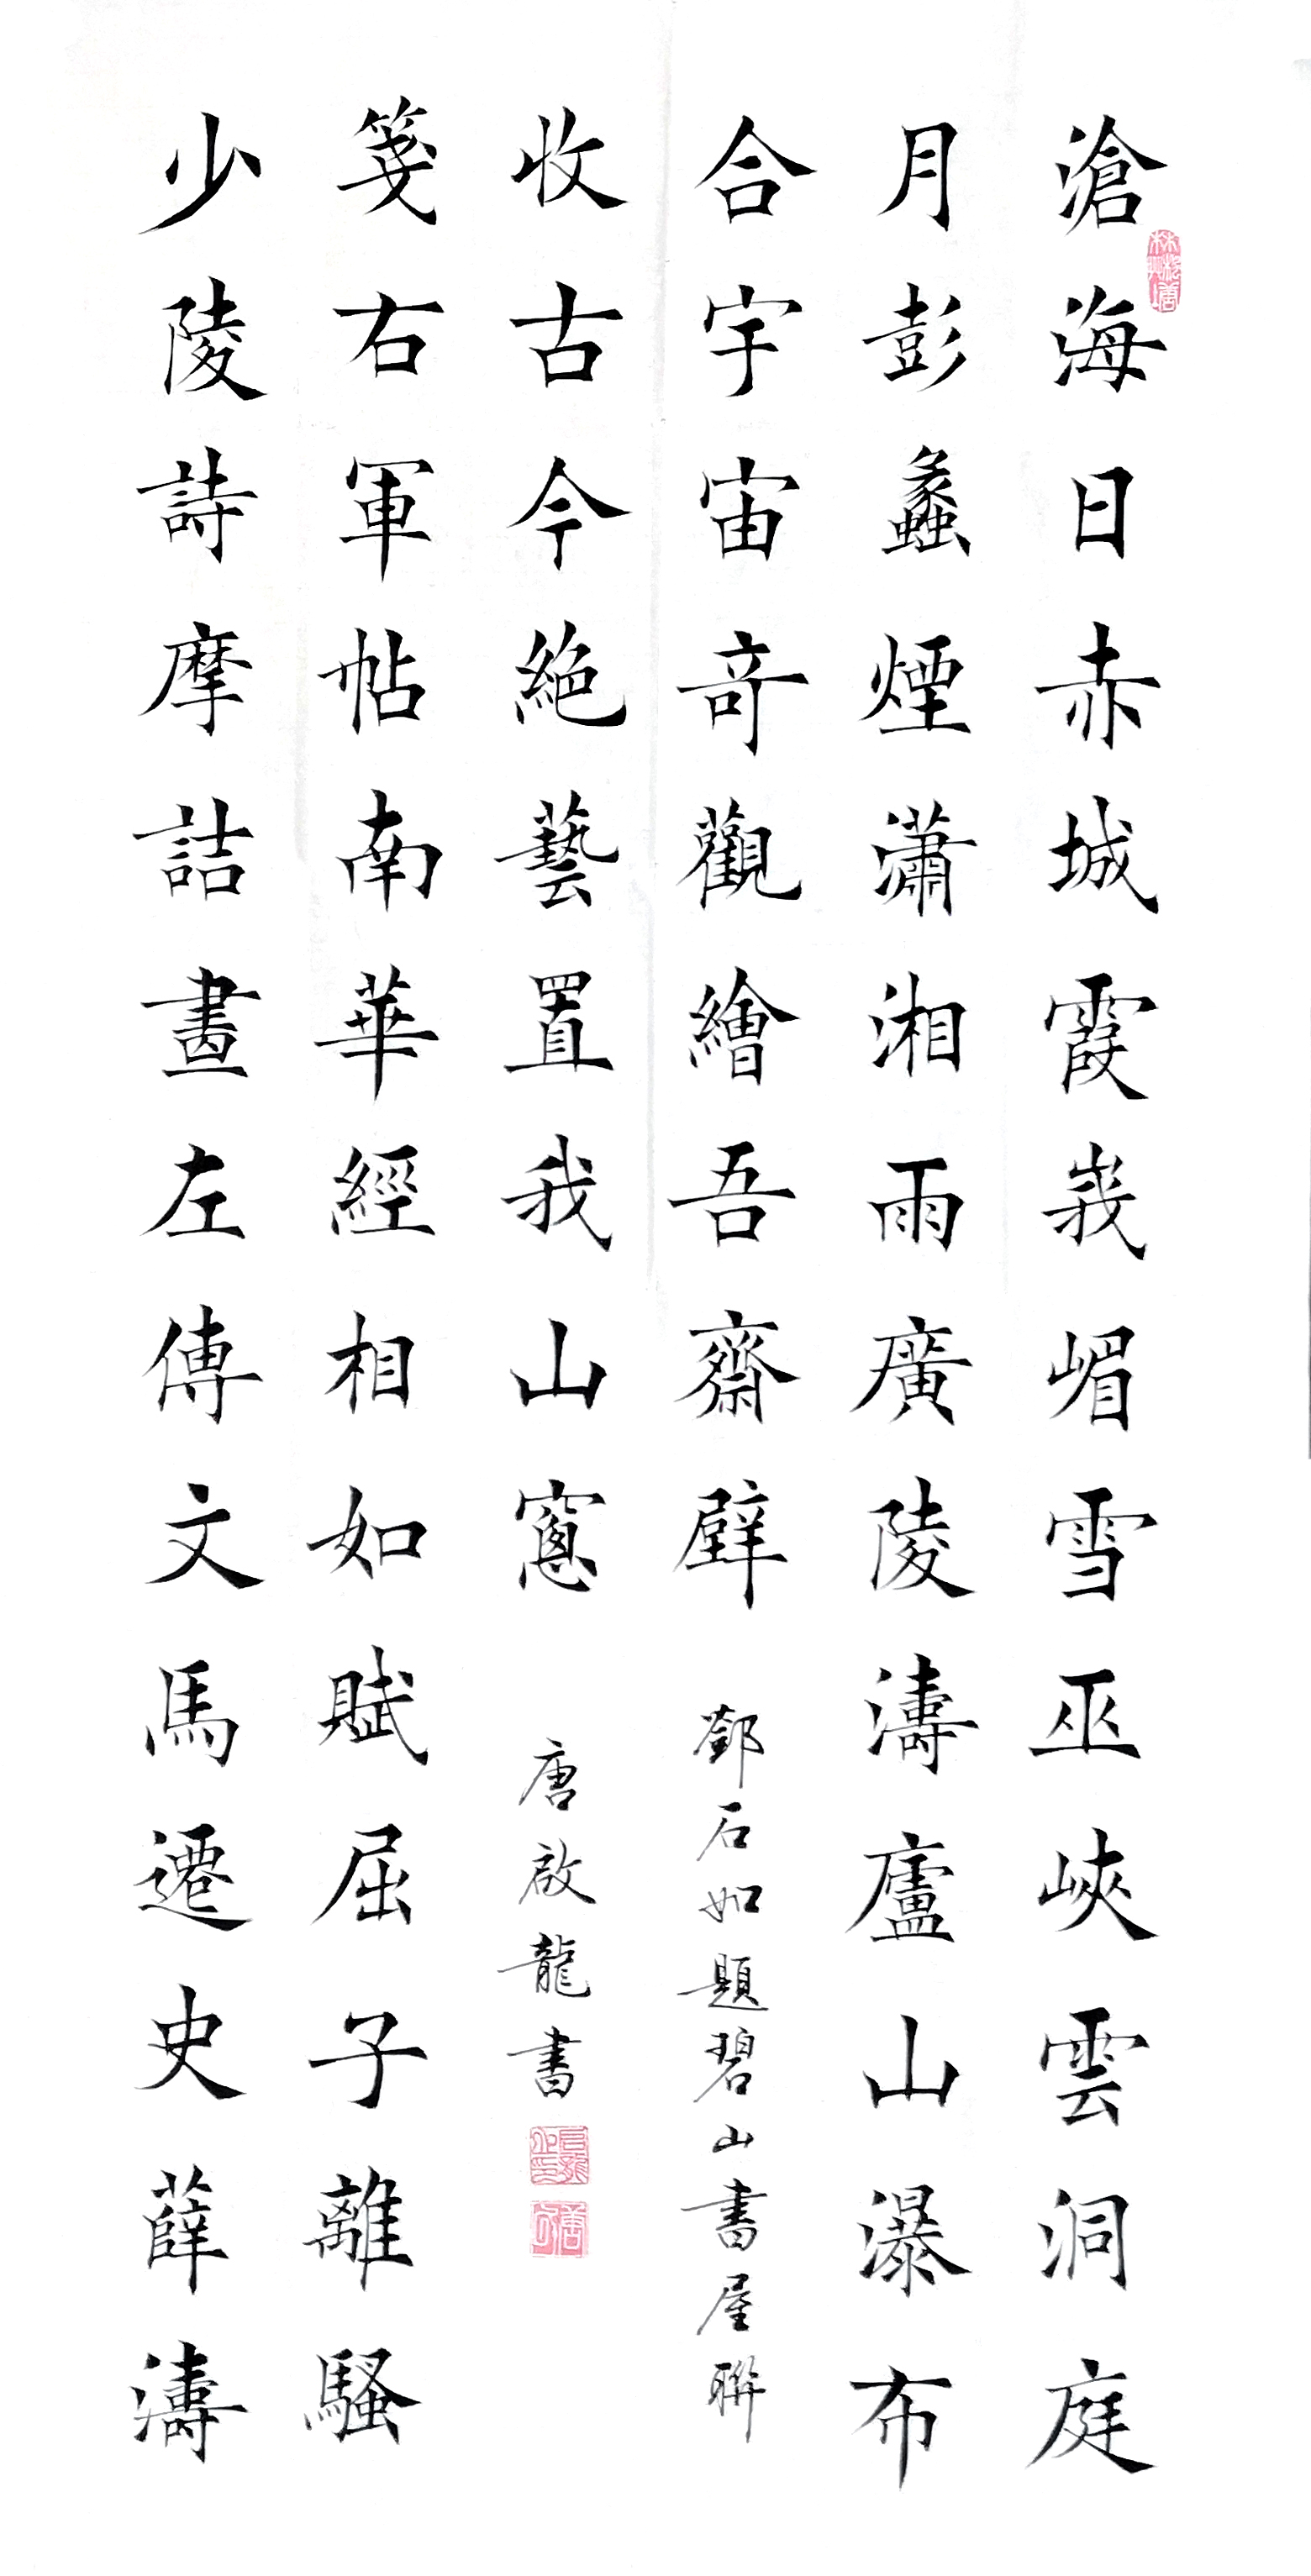 滄海日赤城霞峩嵋雪巫峽雲洞庭
月彭蠡煙瀟湘雨廣陵濤廬山瀑布
合宇宙竒觀繪吾齋壁
鄧石如題碧山書屋聯
少陵詩摩詰畫左傳文馬遷史薛濤
箋右軍帖南華經相如賦屈子離騷
收古今絶藝置我山窻
唐啟龍書